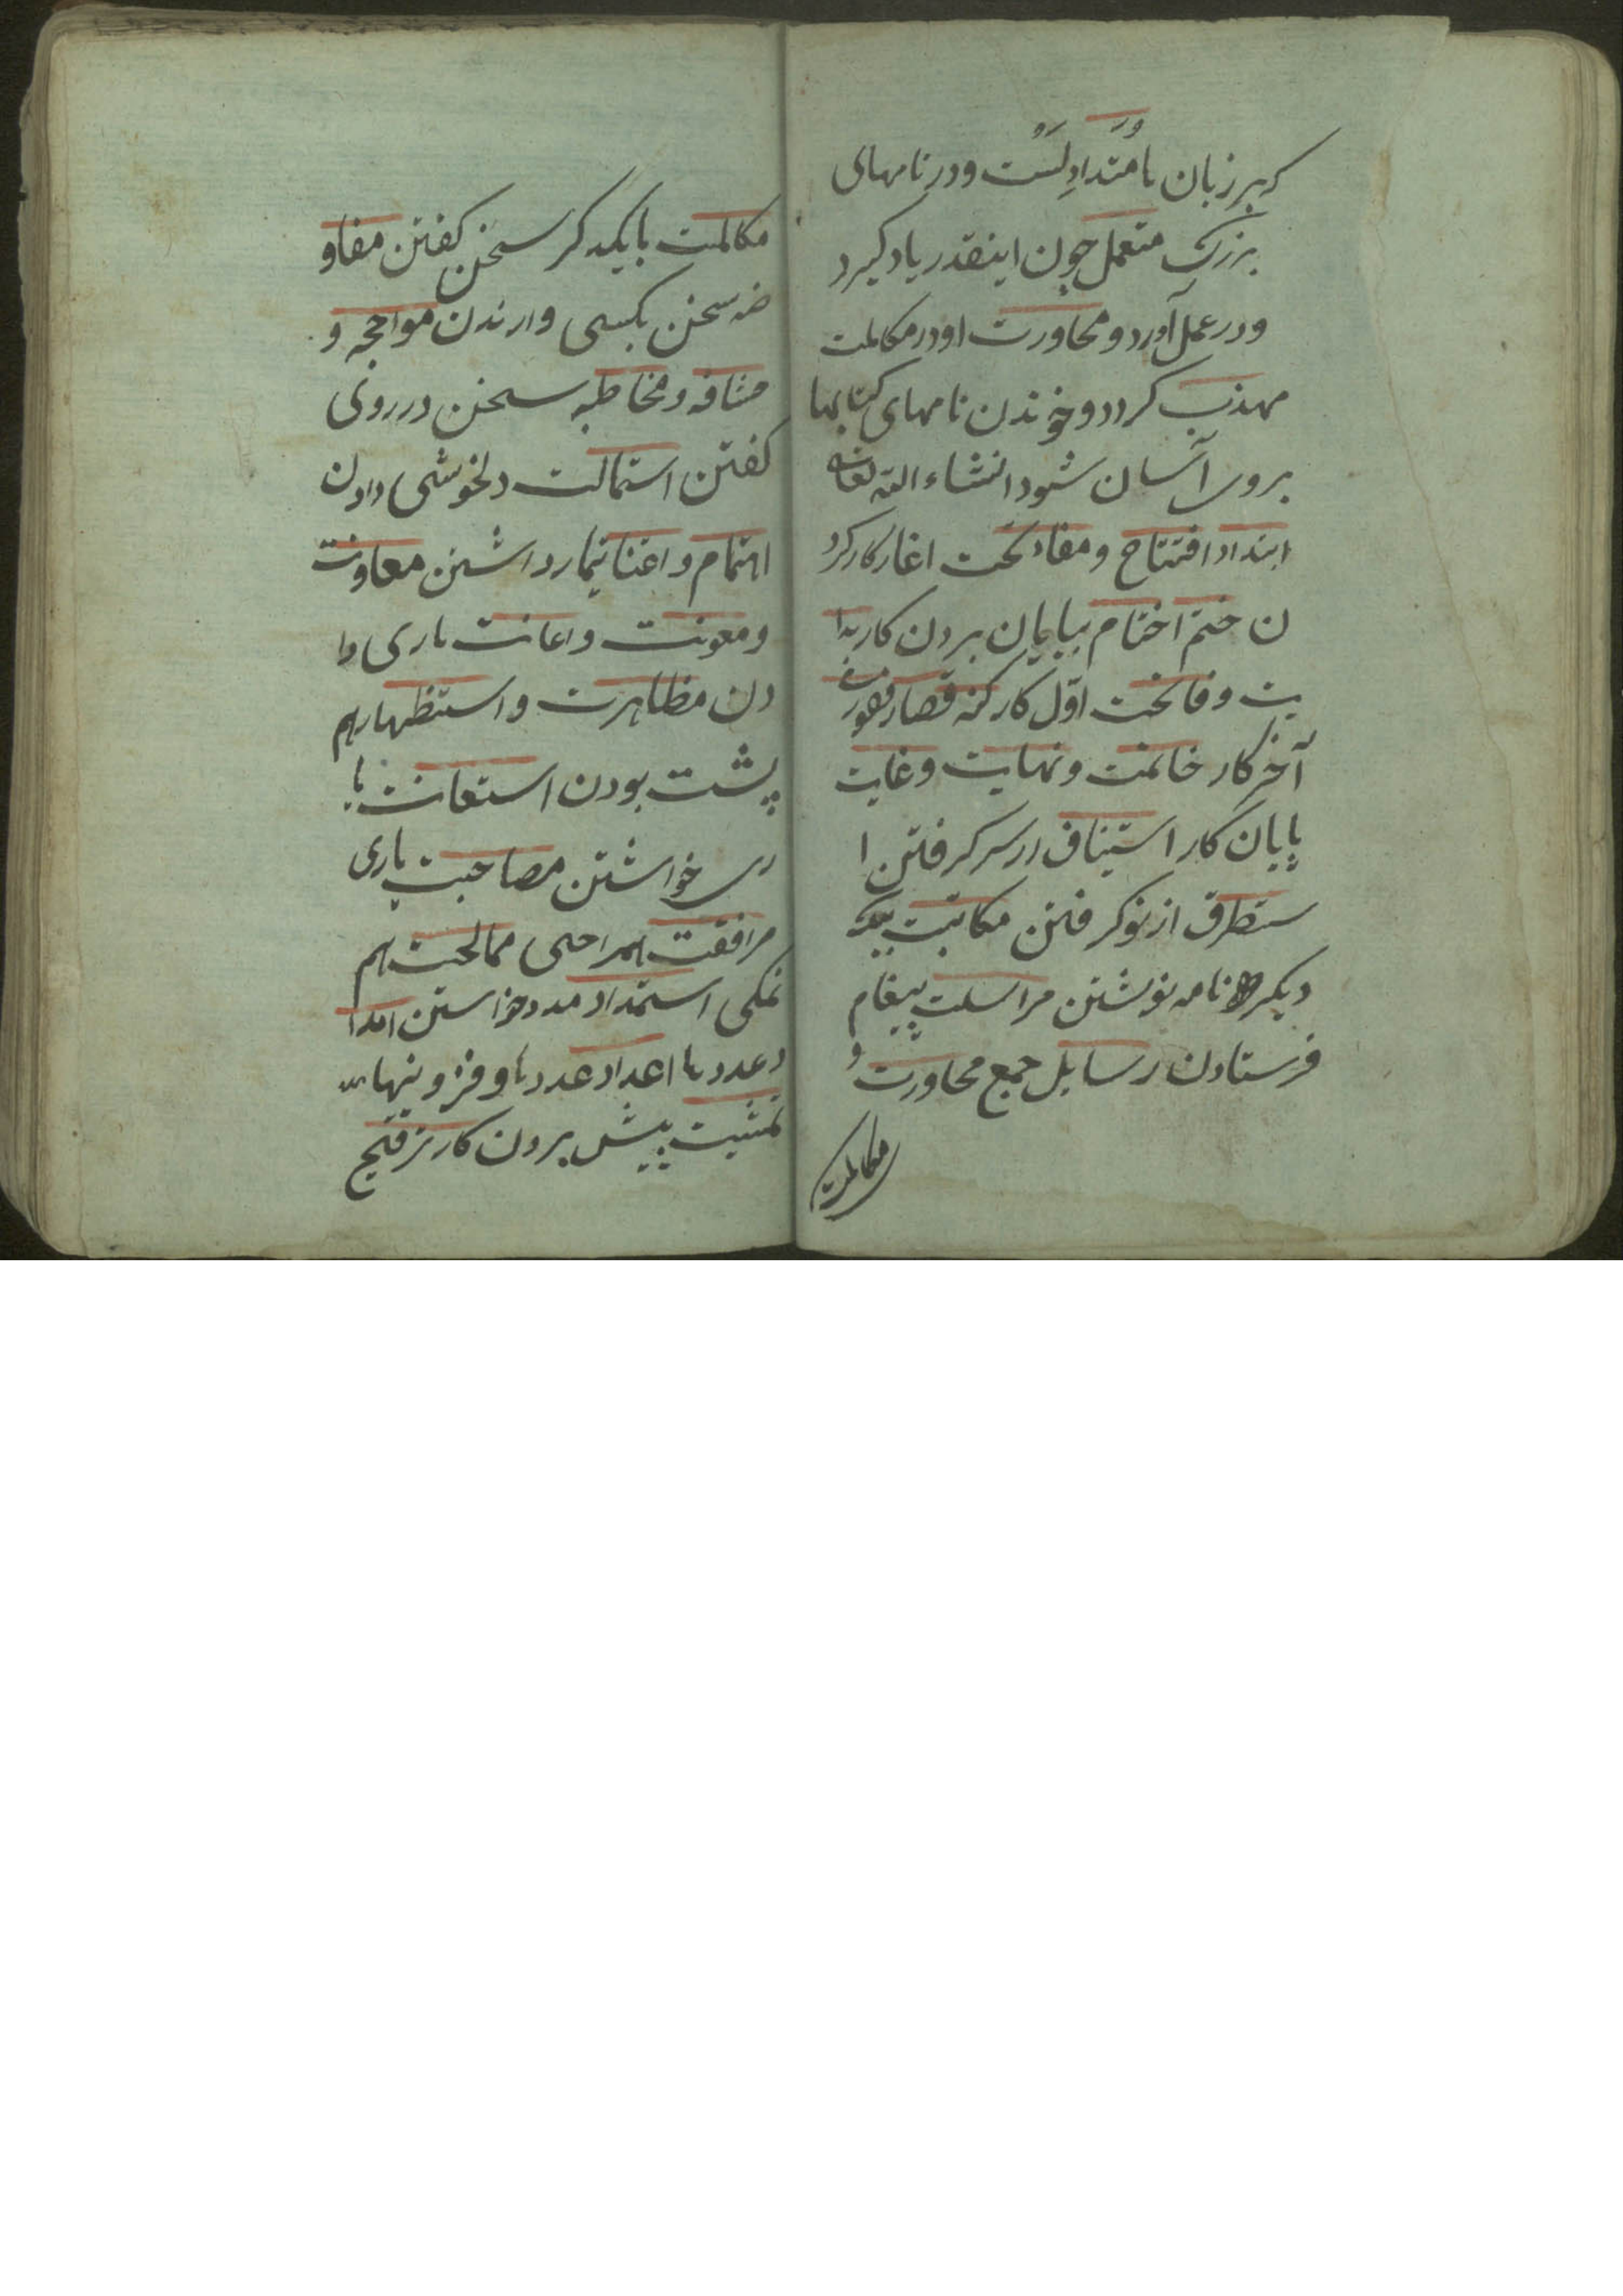 کبر زبان نامتداولست و در نامهای
بزرک متعمل چون اینقدر یاد کیرد
و در عمل آورد و محاورت او در مکالمت
مهذب کردد و خوندن نامهای کتابها
بروی آسان شود انشاء الله تعالی
ابتداء افتتاح و مفاتحت اغاز کار کرد
ن ختم اختام بپایان بردن کار بدا
یت و فاتحت اوّل کار کنه قصار
آخر کار خاتمت و نهایت و غایت
پایان کار استیناف از سر کرفتن ا
ستطرق از نو کرفتن مکاتبت بیک
دیکر نامه نوشتن مراسلت پیغام
فرستادن رسایل جمع محاورت و
مکالمت
مکالمت بایکدکر سخن کفتن مفاو
ضه سخن بکسی وارندن مواجه و
مشافه و مخاطبه سخن در روی
کفتن استمالت دلخوشی دادن
اهتمام و اعتنا تیمار داشتن معاونت
و معونت و اعانت یاری دا
دن مظاهرت و استظهار هم
پشت بودن استعانت یا
ری خواشتن مصاحبت یاری
مرافقت همراهی ممالحت هم
نمکی استمداد مدد خواستن امدا
د عددها اعداد عددها و فزونیها
تمشیت پیش بردن کار